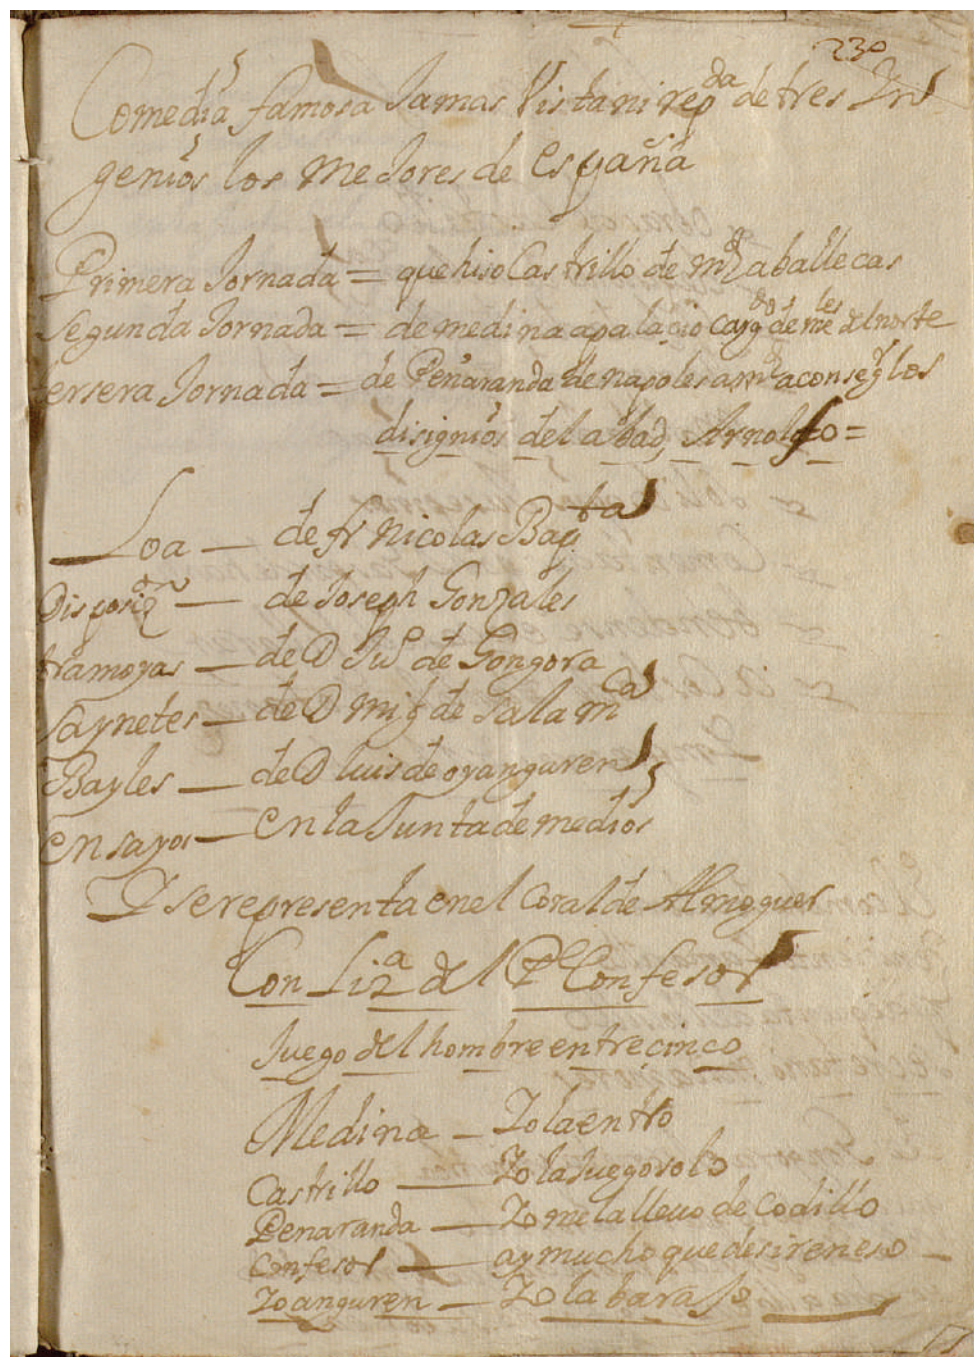 230
Comedia famosa Jamas Vistani repda de tres In
genios los meJores de españa
Primera Jornada = que hiso Castrillo de md aballecas
segunda Jornada = de medina apalacio cargdos de mles del norte
tersera Jornada = de Peñaranda de napoles amd aconsegr los
disignios del abad, Arnolfo =
Loa — de fr nicolas Bapta
Disposizon — de Joseph Gonzales
tramoyas — de D Juo de Gongora
saynetes — de D migl de salamca
Bayles — de D luis de oyanguren
ensayos — en la Junta de medios
Y se representa en el coral de Almoguer
Con Liza del Pe Confesor
Juego del hombre entre cinco
Medina — Yo la entro
Castrillo — Yo la Juego solo
Penaranda — Yo me la lleuo de codillo
Confesor — ay mucho que desir en eso —
Yoanguren — Yo la baraJo